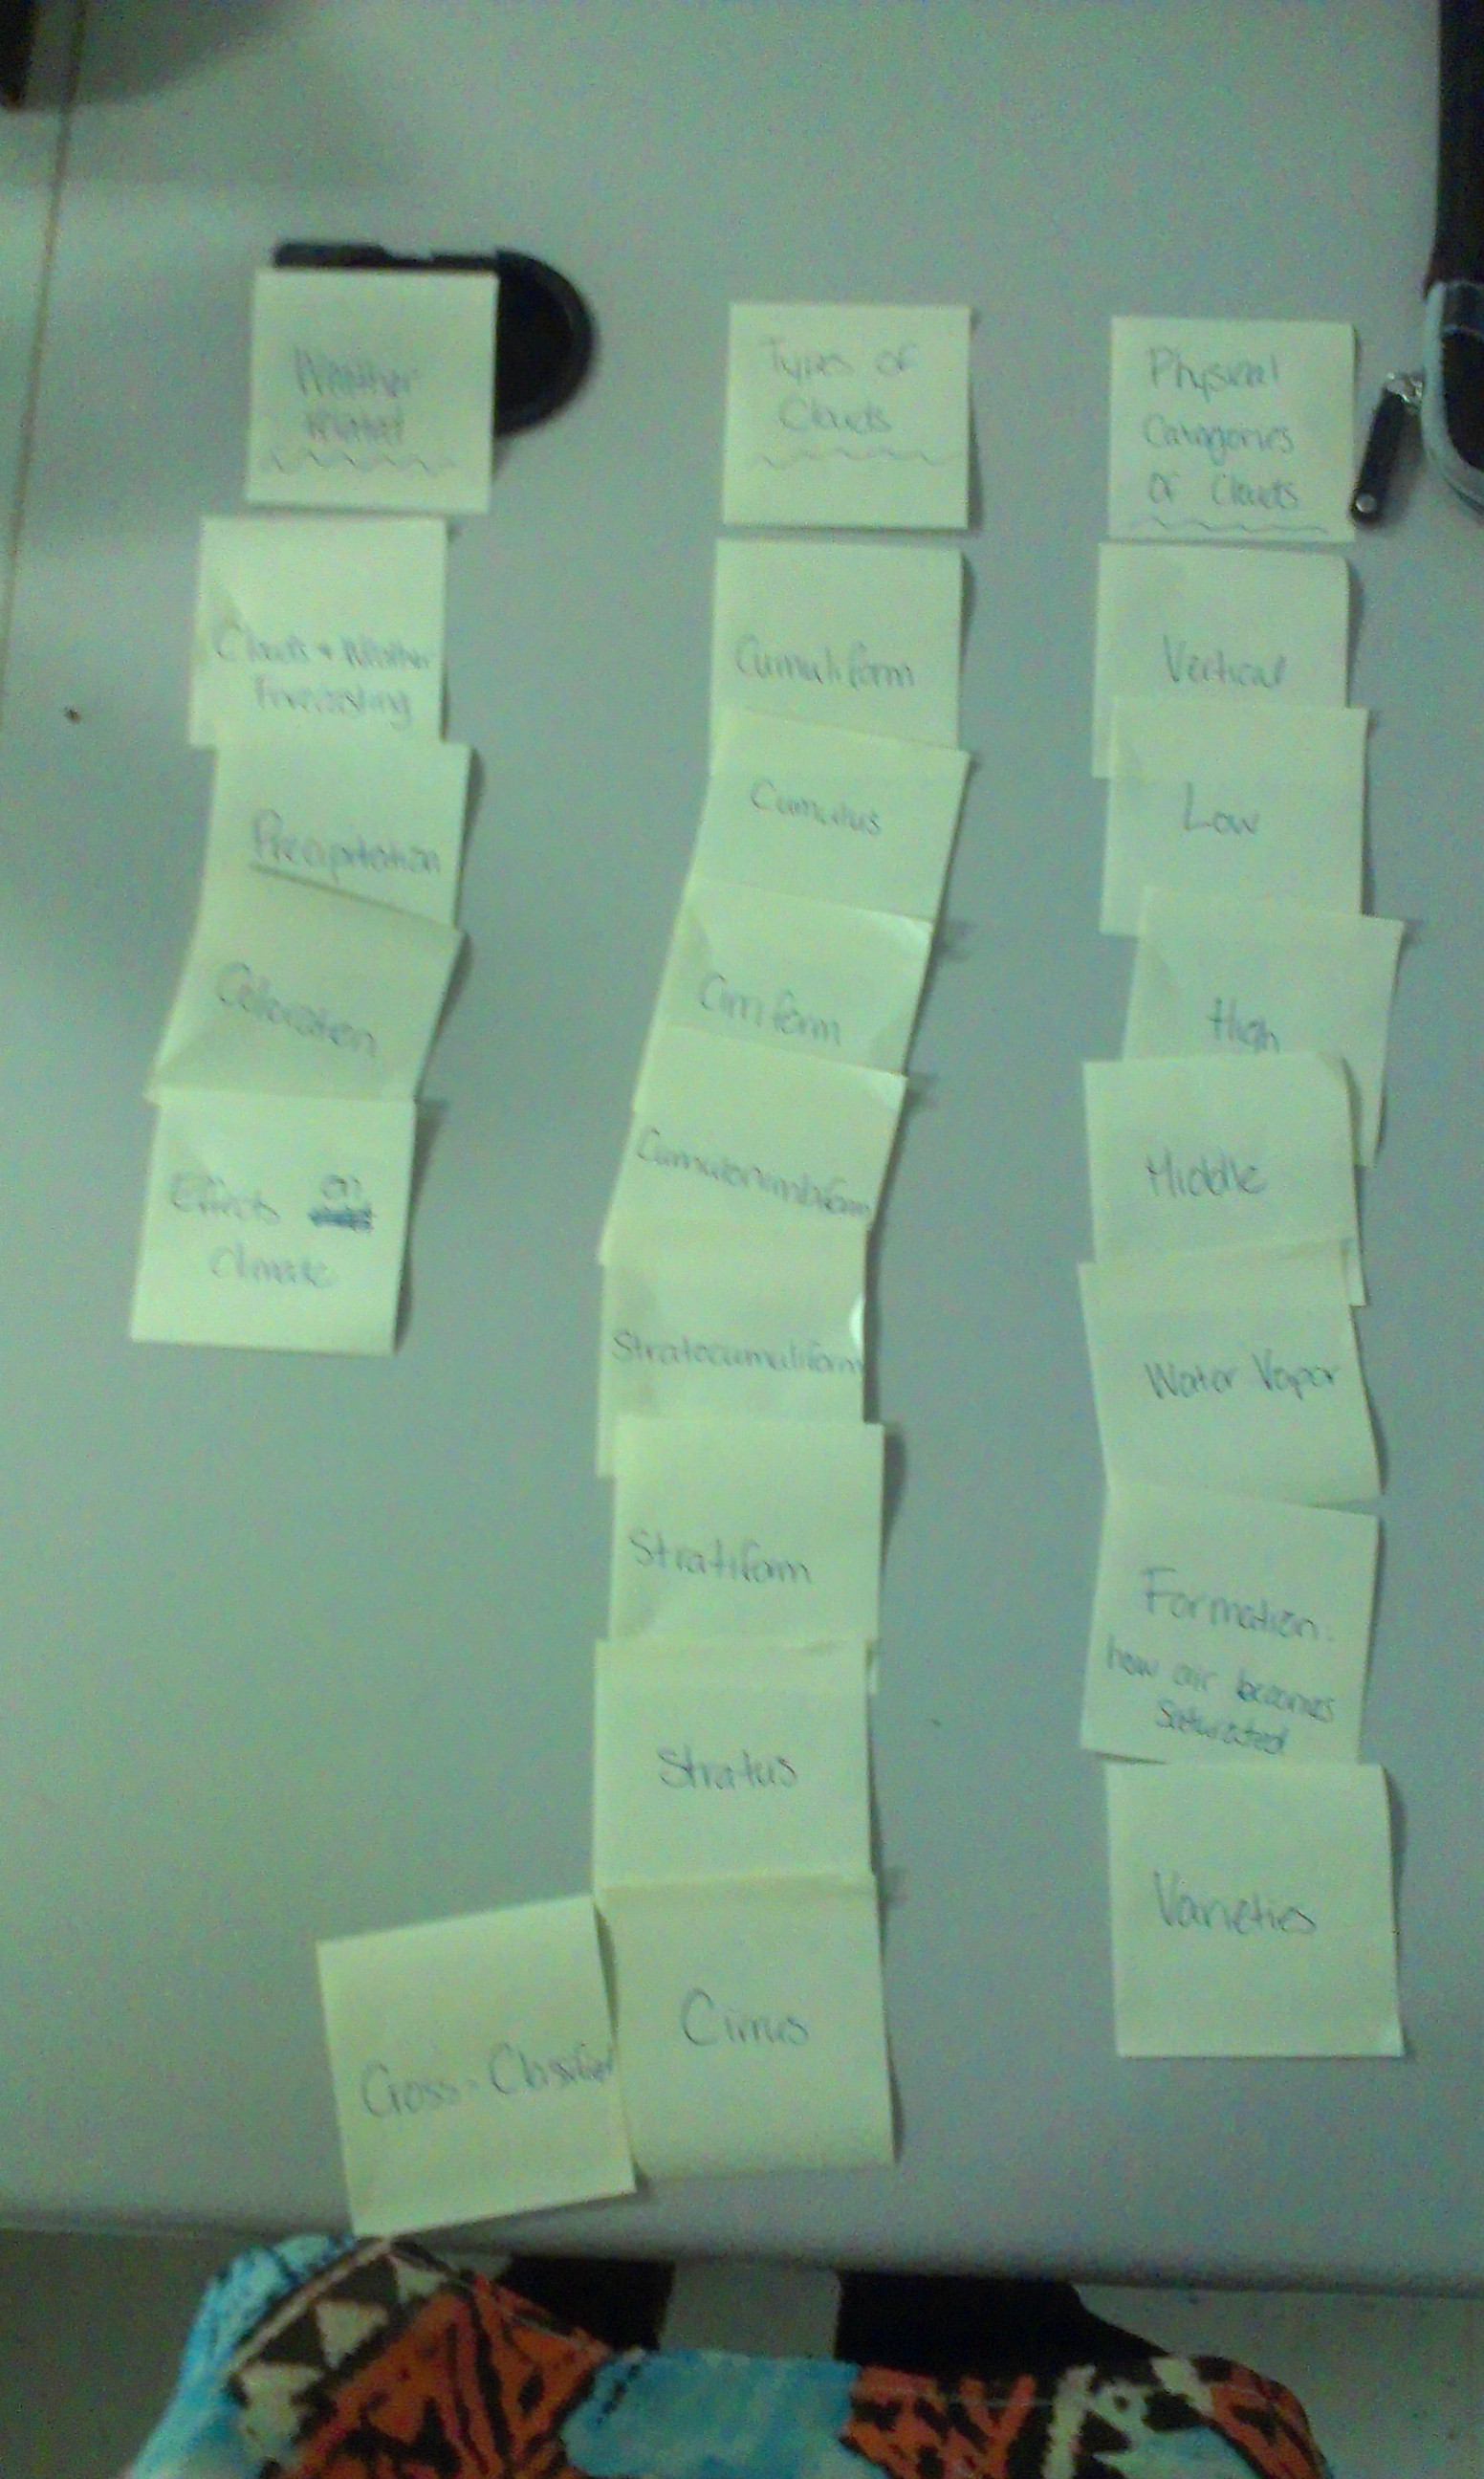 Weather
related
Clouds + Weather
Forecasting
Precipitation
Coloration
Effects on
Climate
Types of
Clouds
Cumuliform
Cumulus
Cirriform
Cumulonimbiform
Stratocumuliform
Stratiform
Stratus
Cirrus
Cross-Classified
Physical
Categories
of Clouds
Vertical
Low
High
Middle
Water Vapor
Formation:
how air becomes
saturated
Varieties